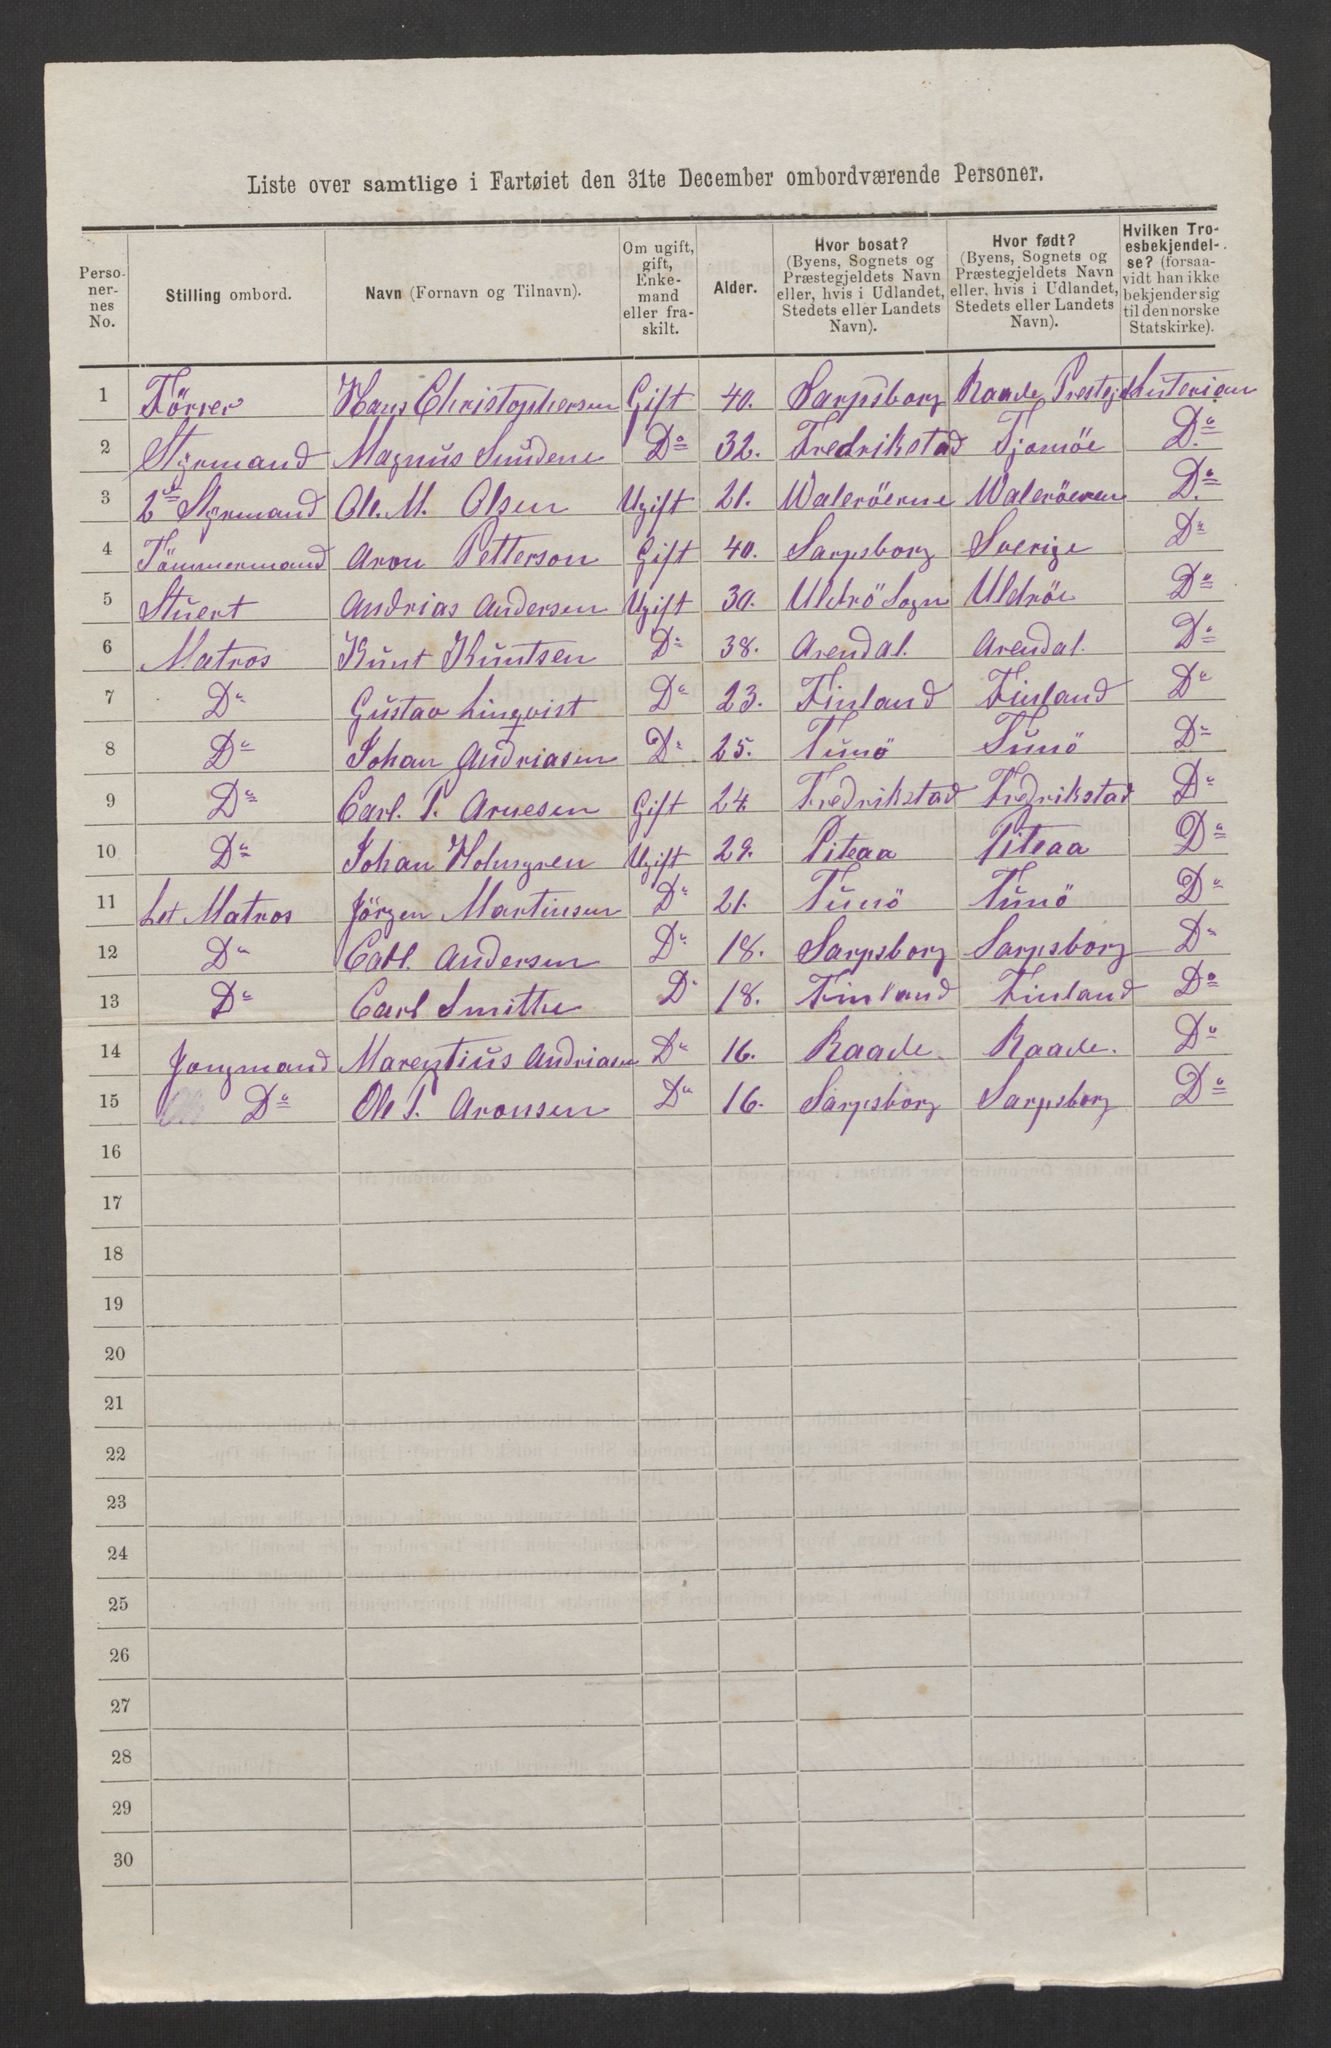 Liste over samtlige i Fartøiet den 31te December ombordværende Personer.
Perso-nernes No. | Stilling ombord. | Navn (Fornavn og Tilnavn). | Om ugift, gift, Enkemand eller fraskilt. | Alder. | Hvor bosat? (Byens, Sognets og Præstegjeldets Navn eller, hvis i Udlandet, Stedets eller Landets Navn). | Hvor født? (Byens, Sognets og Præstegjeldets Navn eller, hvis i Udlandet, Stedets eller Landets Navn). | Hvilken Troesbekjendelse? (forsaavidt han ikke bekjender sig til den norske Statskirke).
1 Förrer Hans Christophersen Gift 40. Sarpsborg Raade Prestegjd Luterian
2 Styrmand Magnus Sundene Do 32. Fredrikstad Tjomöe Do
3 2de Styrmand Ole. M. Olsen Ugift 21. Waleröerne Waleröeren Do
4 Tömmermand Aron Petterson Gift 40. Sarpsborg Sverige Do
5 Stuert Andrias Andersen Ugift 30. Uldrö Sogn Uldröe Do
6 Matros Kunt Kuntsen Do 38. Arendal. Arendal. Do
7 Do Gustav Linqvist Do 23. Finland Finland Do
8 Do Johan Andriasen Do 25. Tunö Tunö Do
9 Do Carl. P. Arnesen Gift 24 Fredrikstad Fredrikstad Do
10 Do Johan Holmgren Ugift 29. Piteaa Piteaa Do
11 Let Matros Jörgen Martinsen Do 21. Tunö Tunö Do
12 Do Carl. Andersen Do 18. Sarpsborg Sarpsborg Do
13 Do Carl Smithe Do 18. Finland Finland Do
14 Jongmand Marentius Andriasen Do 16. Raade. Raade. Do
15 Do Ole P. Aronsen Do 16. Sarpsborg Sarpsborg Do
16
17
18
19
20
21
22
23
24
25
26
27
28
29
30